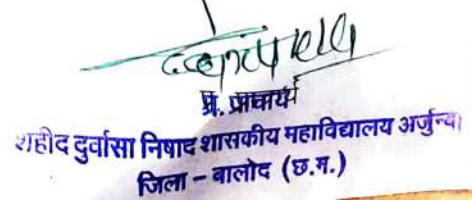 प्र. प्राचार्य
शहीद दुर्वासा निषाद शासकीय महाविद्यालय अर्जुन्दा
जिला - बालोद (छ.ग.)